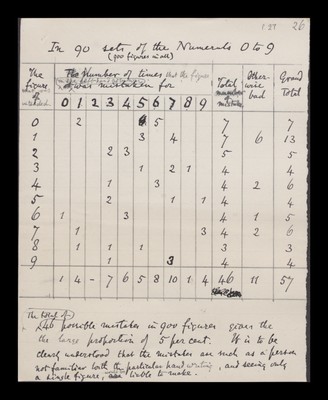 1.27 26
In 90 sets of the Numerals 0 to 9
(900 figures in all)
The figure of Number of times that the figure was mistaken for Total number of mistakes Other-wise bad Grand Total
0 1 2 3 4 5 6 7 8 9
0 2 5 7 7
1 3 4 7 6 13
2 2 3 5 5
3 1 2 1 4 4
4 1 3 4 2 6
5 2 1 1 4 4
6 1 3 4 1 5
7 1 3 4 2 6
8 1 1 1 3 3
9 1 3 4 4
1 4 - 7 6 5 8 10 1 4 46 11 57
The total of
46 possible mistakes in 900 figures gives the
the large proportion of 5 per cent. It is to be
clearly understood that the mistakes are such as a person
not familiar with the particular hand writing, and seeing only
a single figure, liable to make.